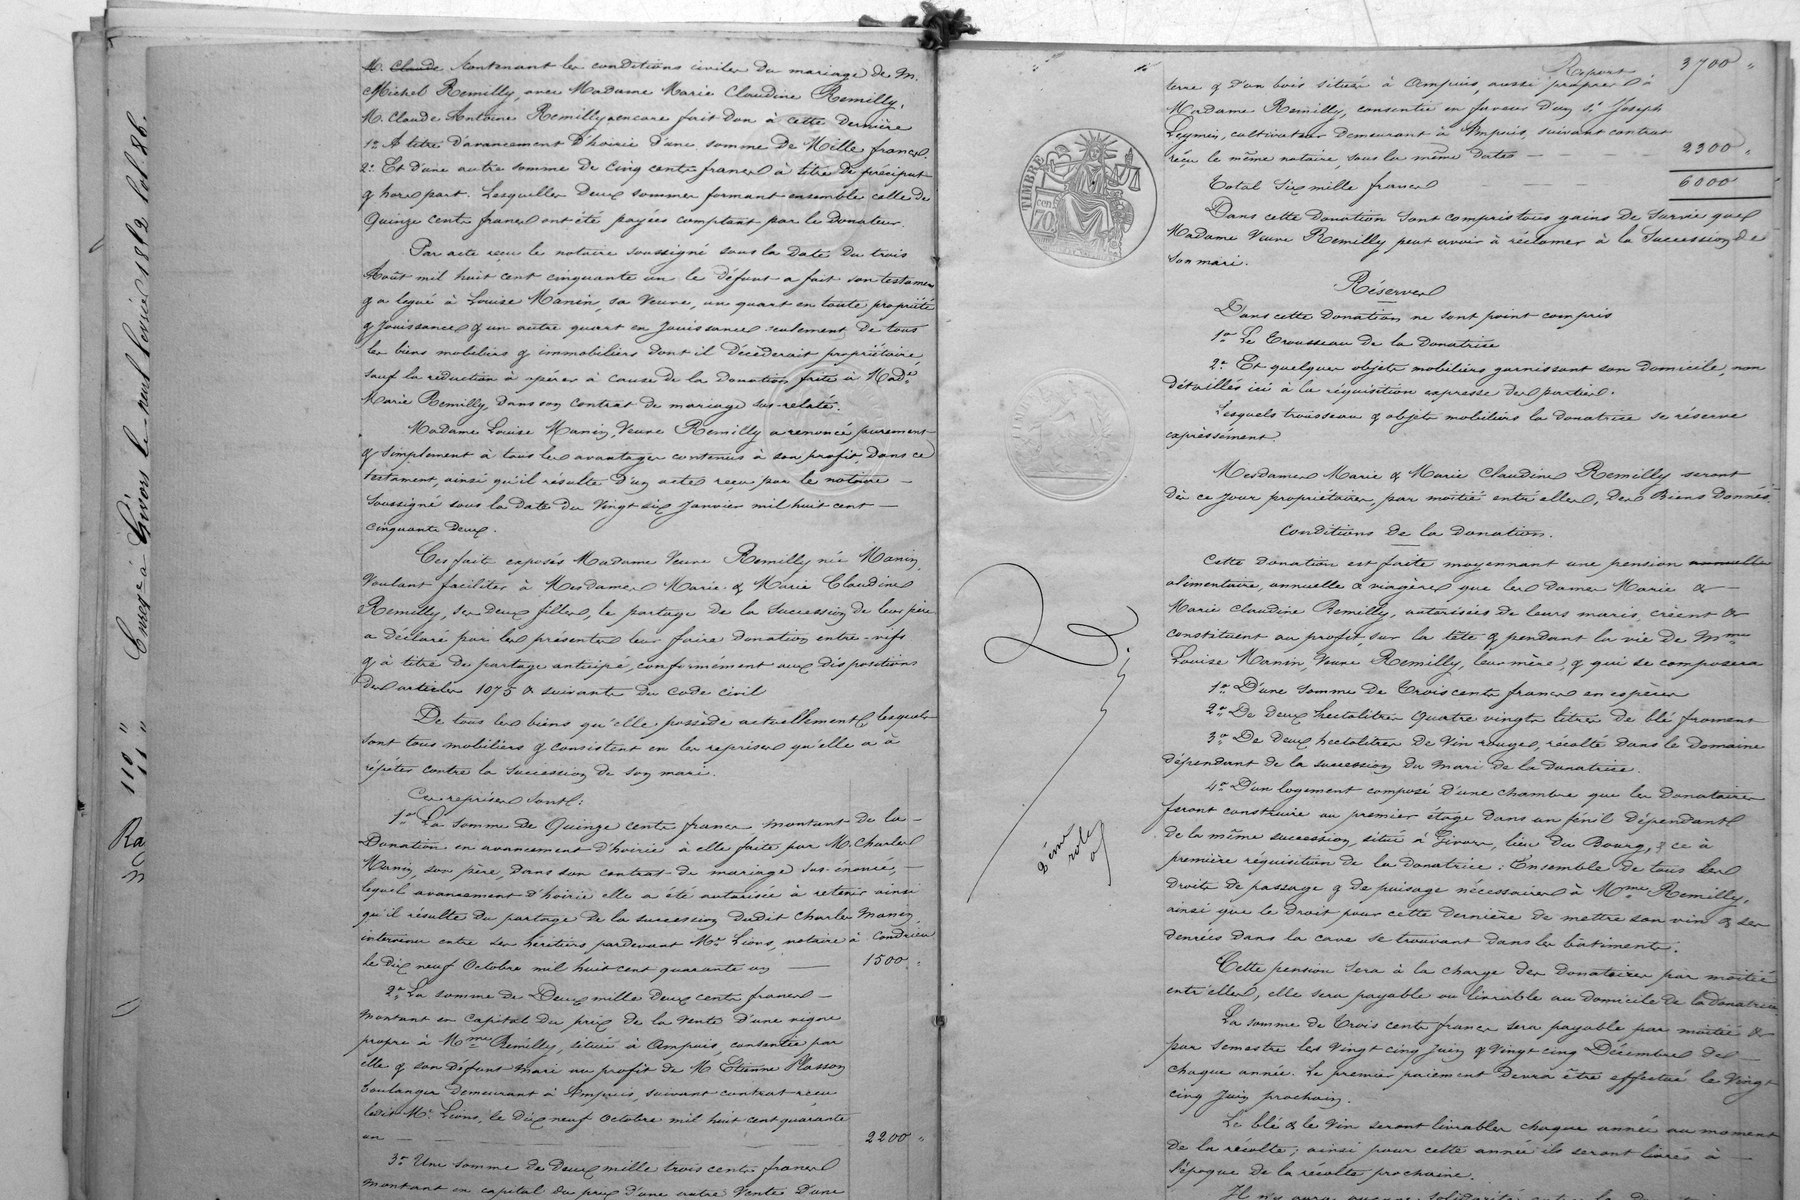 M. Claude contenant les conditions civiles du mariage de M.
Michel Remilly, avec Madame Marie Claudine Remilly,
M. Claude Antoine Remilly a encore fait don à cette dernière
1º A titre d'avancement d'hoirie d'une somme de Mille francs.
2º Et d'une autre somme de Cinq cents francs à titre de préciput
& hors part. Lesquelles deux sommes formant ensemble celle de
Quinze cents francs ont été payées comptant par le Donateur.
Par acte reçu le notaire soussigné sous la date du trois
Août mil huit cent cinquante un le défunt a fait son testament
& a légué à Louise Manin, sa Veuve, un quart en toute propriété
& jouissance & un autre quart en jouissance seulement de tous
les biens mobiliers & immobiliers dont il décèderait propriétaire
sauf la réduction à opérer à cause de la donation faite à Made
Marie Remilly, dans son contrat de mariage sus-relaté.
Madame Louise Manin, Veuve Remilly a renoncé purement
& simplement à tous les avantages contenus à son profit, dans ce
testament, ainsi qu'il résulte d'un acte reçu par le notaire
soussigné sous la date du Vingt six Janvier mil huit cent
cinquante deux.
Ces faits exposés Madame Veuve Remilly née Manin,
Voulant faciliter à Mesdames Marie & Marie Claudine
Remilly, ses deux filles, le partage de la succession de leur père
a déclaré par les présentes leur faire donation entre-vifs
& à titre de partage anticipé, conformément aux dispositions
des articles 1075 & suivants du code civil
De tous les biens qu'elle possède actuellement lesquels
sont tous mobiliers & consistent en les reprises qu'elle a à
répéter contre la succession de son mari.
Ces reprises sont:
1º La somme de Quinze cents francs montant de la
Donation en avancement d'hoirie à elle faite par M. Charles
Manin, son père, dans son contrat de mariage sus-énoncé,
lequel avancement d'hoirie elle a été autorisée à retenir ainsi
qu'il résulte du partage de la succession dudit Charles Manin
intervenu entre ses héritiers pardevant Me Lions, notaire à Condrieu
le Dix neuf Octobre mil huit cent quarante un 1500 "
2º La somme de Deux mille deux cents francs
montant en capital du prix de la vente d'une vigne
propre à Mme Remilly, située à Ampuis, consentie par
elle & son défunt mari au profit de M. Etienne Plasson
boulanger demeurant à Ampuis, suivant contrat reçu
ledit Me Lions, le dix neuf octobre mil huit cent quarante
un 2200 "
3º Une somme de deux mille trois cents francs
montant en capital du prix d'une autre Vente d'une
Envoyé à Givors le neuf février 1852 fol. 86.
Report 3700 "
terre & d'un bois situés à Ampuis, aussi propres à
Madame Remilly, consentie en faveur d'un Sr Joseph
Leymin, cultivateur demeurant à Ampuis, suivant contrat
reçu le même notaire, sous la même date 2300 "
Total Six mille francs 6000
Dans cette donation sont compris tous gains de survie que
Madame Veuve Remilly peut avoir à réclamer à la succession de
son mari.
Réserves
Dans cette donation ne sont point compris
1º Le Trousseau de la Donatrice
2º Et quelques objets mobiliers garnissant son domicile, non
détaillés ici à la réquisition expresse des parties.
Lesquels trousseau & objets mobiliers la donatrice se réserve
expressément.
Mesdames Marie & Marie Claudine Remilly seront
dès ce jour propriétaires, par moitié entr'elles, des Biens donnés.
Conditions de la Donation.
Cette donation est faite moyennant une pension annuelle
alimentaire, annuelle & viagère que les dames Marie &
Marie Claudine Remilly, autorisées de leurs maris, créent &
constituent au profit, sur la tête & pendant la vie de Mme
Louise Manin, Veuve Remilly, leur mère, & qui se composera
1º D'une somme de Trois cents francs en espèces
2º De deux hectolitres Quatre vingts litres de blé froment
3º De deux hectolitres de vin rouge, récolté dans le domaine
dépendant de la succession du mari de la donatrice.
4º D'un logement composé d'une chambre que les Donataires
feront construire au premier étage dans un fenil dépendant
de la même succession situé à Givors, lieu du Bourg, & ce à
première réquisition de la donatrice: Ensemble de tous les
droits de passage & de puisage nécessaires à Mme Remilly,
ainsi que le droit pour cette dernière de mettre son vin & ses
denrées dans la cave se trouvant dans les bâtiments.
Cette pension sera à la charge des donataires par moitié
entr'elles, elle sera payable ou livrable au domicile de la donatrice
La somme de Trois cents francs sera payable par moitié &
par semestre les Vingt cinq Juin & Vingt cinq Décembre de
chaque année. Le premier paiement devra être effectué le Vingt
cinq Juin prochain.
Le blé & le vin seront livrables chaque année au moment
de la récolte; ainsi pour cette année ils seront livrés à
l'époque de la récolte prochaine.
TIMBRE
70 cen
2ème
role